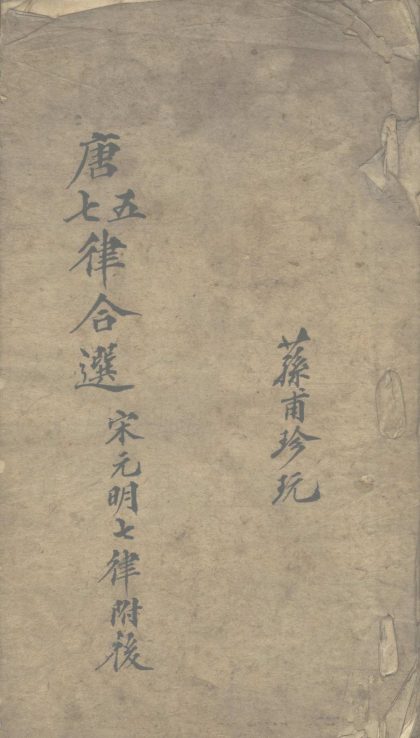 蓀甫珍玩
唐五七律合選
宋元明七律附後